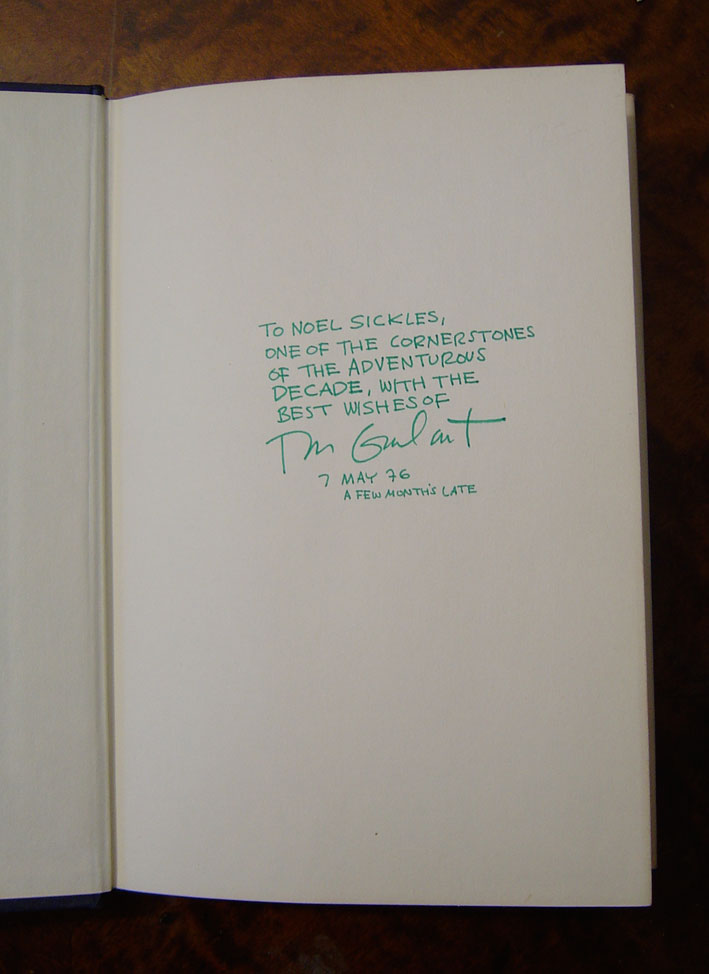 TO NOEL SICKLES,
ONE OF THE CORNERSTONES
OF THE ADVENTUROUS
DECADE, WITH THE
BEST WISHES OF
Ron Goulart
7 MAY 76
A FEW MONTH'S LATE